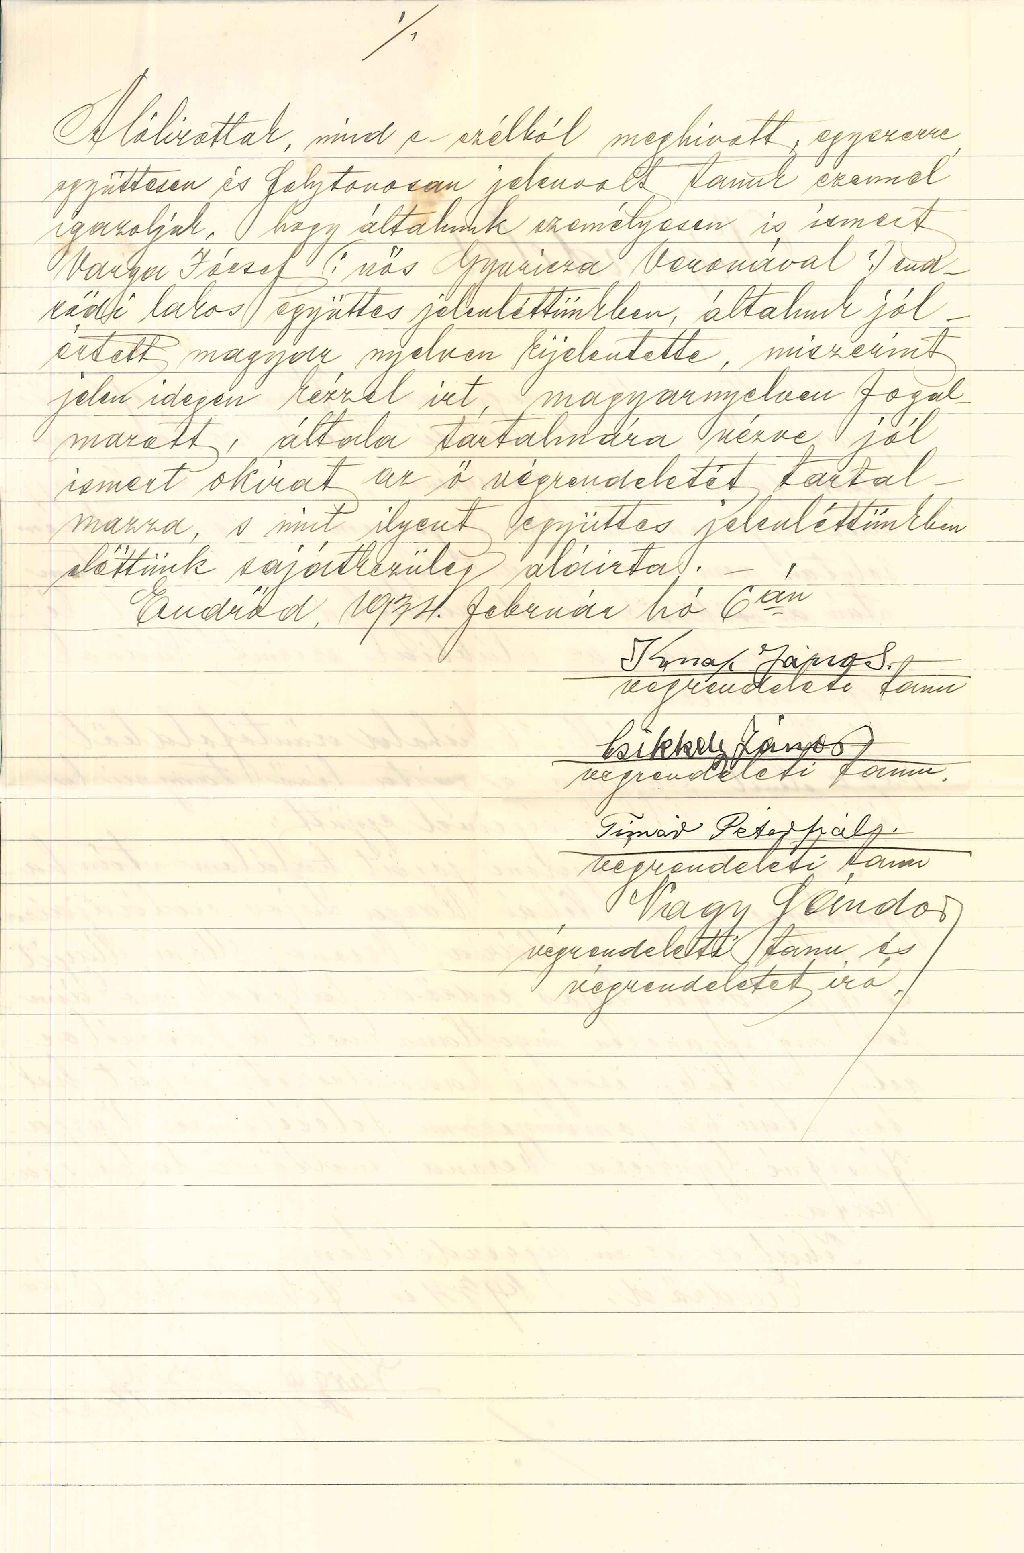 1/.
Alólirottak, mind e czélból meghivott, egyszerre,
együttesen és folytonosan jelenvolt tanuk ezennel
igazoljuk, hogy általunk személyesen is ismert
Varga József (: nős Gyuricza Veronával :) end-
rődi lakos együttes jelenléttünkben, általunk jól -
értett magyar nyelven kijelentette, miszerint
jelen idegen kézzel irt, magyarnyelven fogal-
mazott, általa tartalmára nézve jól
ismert okirat az ő végrendeletét tartal-
mazza, s mint ilyent együttes jelenléttünkben
előttünk sajátkezüleg aláirta. —
Endrőd, 1934. február hó 6án
János.
végrendeleti tanu
Csikkely János
végrendeleti tanu.
Timár Péterpál.
végrendeleti tanu
Nagy Sándor
végrendeletti tanu és
végrendeletet iró.